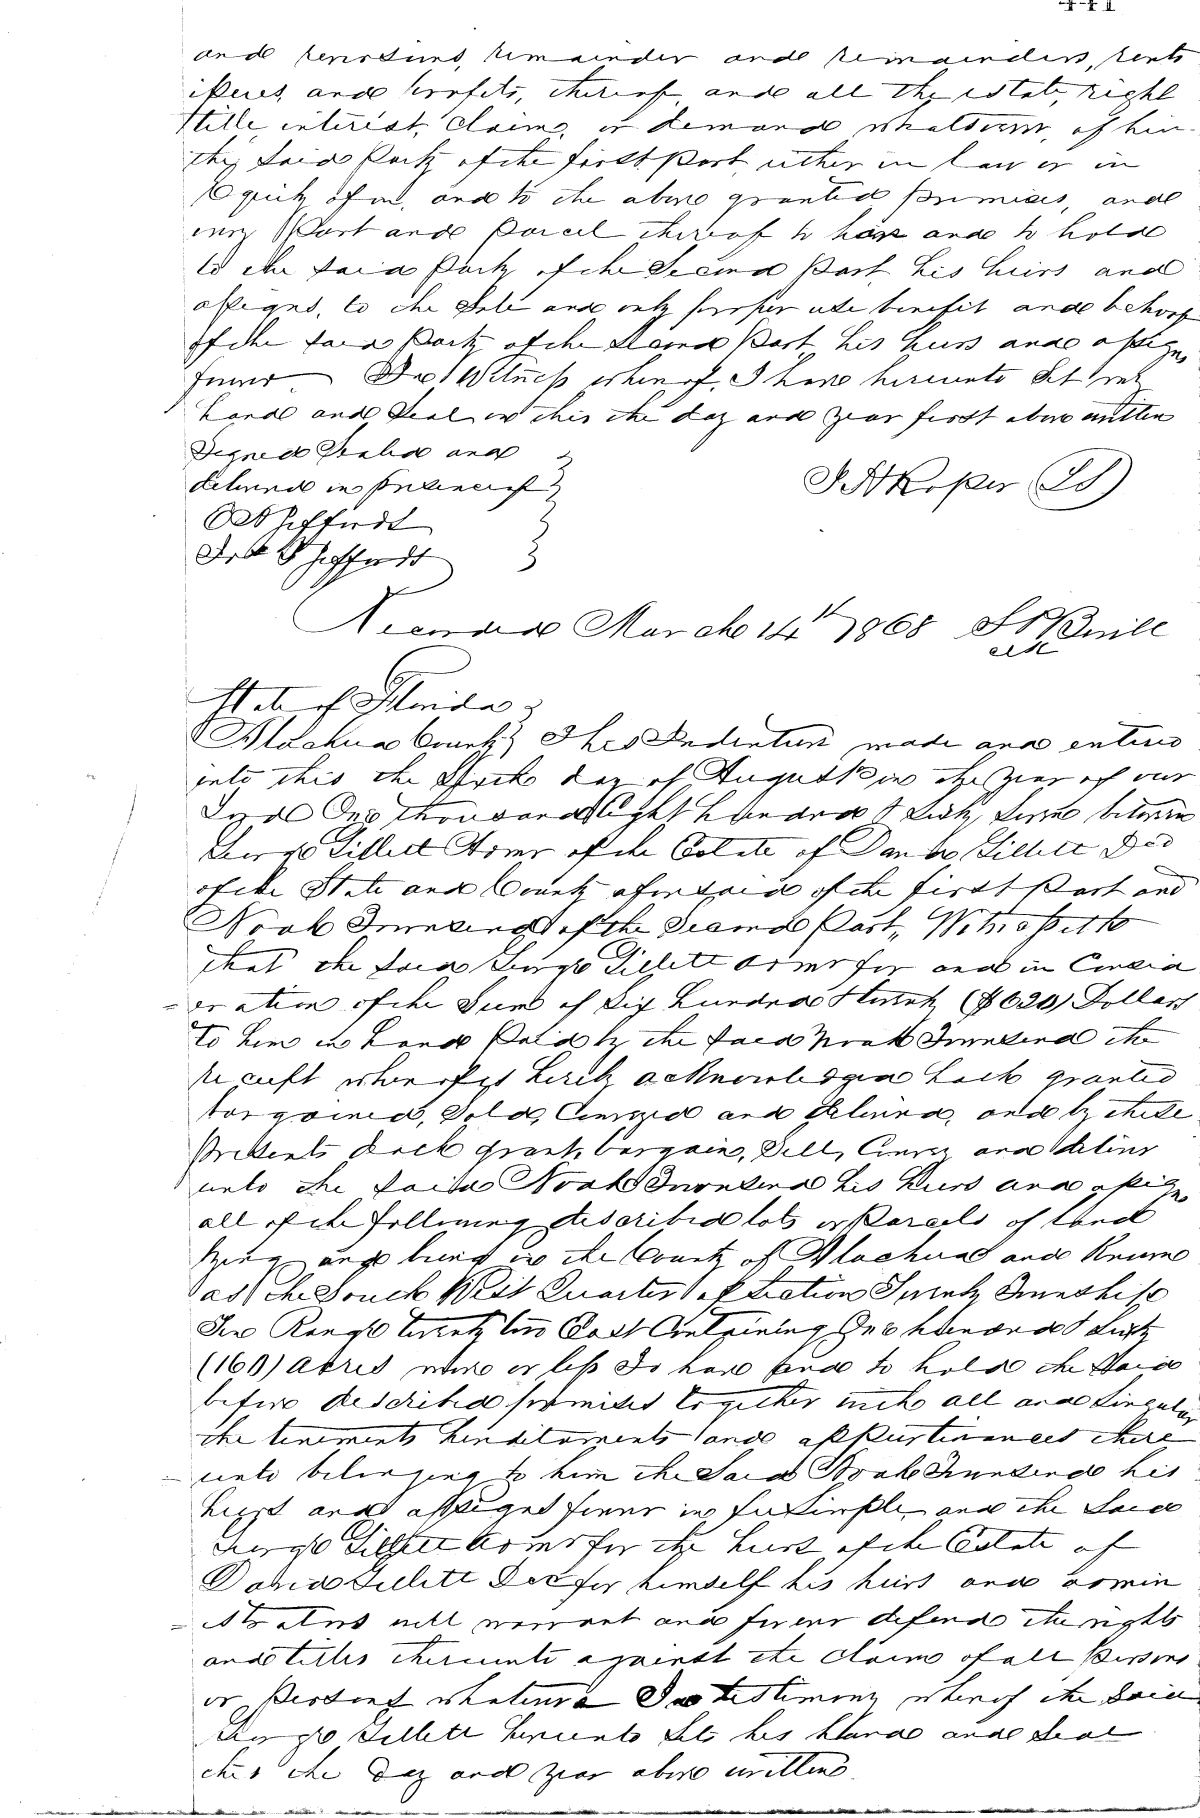 441
and reversions, remainder and remainders, rents
issues and profits, thereof and all the estate, right
title, interest, claim, or demand whatsoever, of him
the said Party of the first part, either in law or in
Equity of in, and to the above granted premises, and
every Part and Parcel thereof to have and to hold
to the said Party of the Second Part, his heirs and
assigns, to the Sole and only proper use benefit and behoof
of the said Party of the Second Part his heirs and assigns
forever In Witness whereof, I have hereunto Set my
hand and Seal on this the day and year first above written
Signed Sealed and
delivered in presence of
J A Roper (LS)
Recorded March 14th 1868
clk
State of Florida
Alachua County This Indenture made and entered
into this the day of August in the year of our
Lord One thousand Eight hundred & Sixty Seven between
George Gillett Admr of the Estate of Gillett Decd
of the State and County aforesaid of the first Part and
Noah Townsend of the Second Part, Witnesseth
that the Said George Gillett Admr for and in Consid
=eration of the Sum of Six hundred & twenty ($620) Dollars
to him in hand Paid by the said Noah Townsend the
receipt whereof is hereby acknowledged hath granted
bargained, Sold, Conveyed and delivered, and by these
Presents doth grant, bargain, Sell, Convey and deliver
unto the said Noah Townsend his heirs and assigns
all of the following described lots or Parcels of land
lying and being in the County of Alachua and Known
as the South West Quarter of Section Twenty Township
Ten Range twenty two East Containing One hundred & Sixty
(160) Acres more or less To have and to hold the Said
before described premises together with all and Singular
the tenements hereditaments and appurtenances there
=unto belonging to him the Said Noah Townsend his
heirs and assigns forever in fee Simple, and the Said
George Gillett Admr for the heirs of the Estate of
David Gillett Dec for himself his heirs and admin
=istrators will warrant and forever defend the rights
and titles thereunto against the claim of all Persons
or Persons whatever In testimony whereof the Said
George Gillett hereunto Sets his hand and Seal
this the Day and year above written